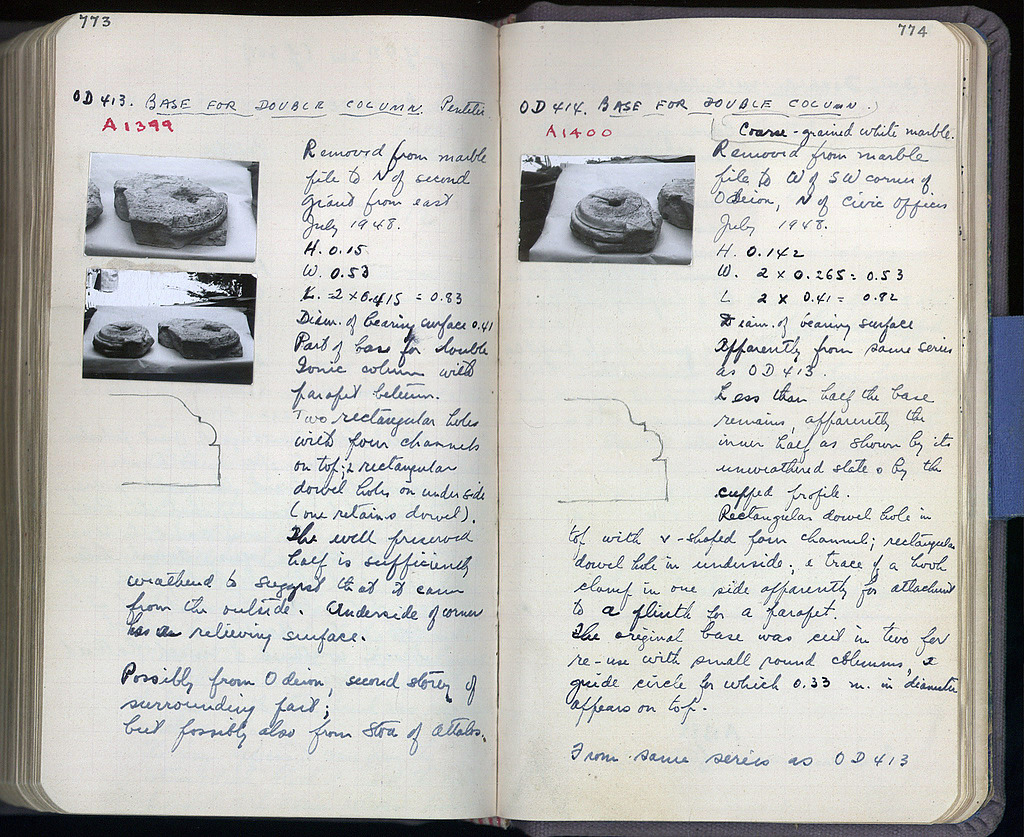 773
OD 413. BASE FOR DOUBLE COLUMN. Pentelic
A1399
Removed from marble
pile to N of second
giant from east
July 1948.
H. 0.15
W. 0.53
L. = 2 x 0.415 = 0.83
Diam. of bearing surface 0.41
Part of base for double
Ionic column with
parapet between.
Two rectangular holes
with pour channels
on top; 2 rectangular
dowel holes on underside
(one retains dowel).
The well preserved
half is sufficiently
weathered to suggest that it came
from the outside. Underside of corner
has a relieving surface.
Possibly from Odeion, second storey of
surrounding part;
but possibly also from Stoa of Attalos.
774
OD 414. BASE FOR DOUBLE COLUMN.
A1400
Coarse-grained white marble.
Removed from marble
pile to W of SW corner of
Odeion, N of Civic Offices
July 1948.
H. 0.142
W. 2 x 0.265 = 0.53
L 2 x 0.41 = 0.82
Diam. of bearing surface
Apparently from same series
as OD 413.
Less than half the base
remains, apparently the
inner half as shown by its
unweathered state & by the
cupped profile.
Rectangular dowel hole in
top with v-shaped pour channel; rectangular
dowel hole in underside; & trace of a hook
clamp in one side apparently for attachment
to a plinth for a parapet.
The original base was cut in two for
re-use with small round columns, a
guide circle for which 0.33 m. in diameter
appears on top.
From same series as OD 413